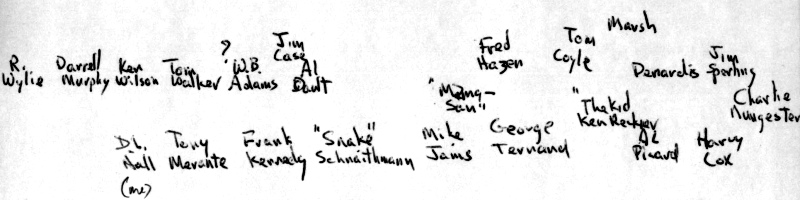 Marsh
Jim Case
Tom Coyle
Fred Hazen
?
R. Wylie
Darrell Murphy
Ken Wilson
Tom Walker
W.B. Adams
Al Dault
Denardis
Jim Sparling
"Mang-San"
"The Kid
Charlie
D.L. Nall
(me)
Tony Merante
Frank Kennedy
"Snake" Schnaithmann
Mike Jams
George Ternand
Al Picard
Harvy Cox